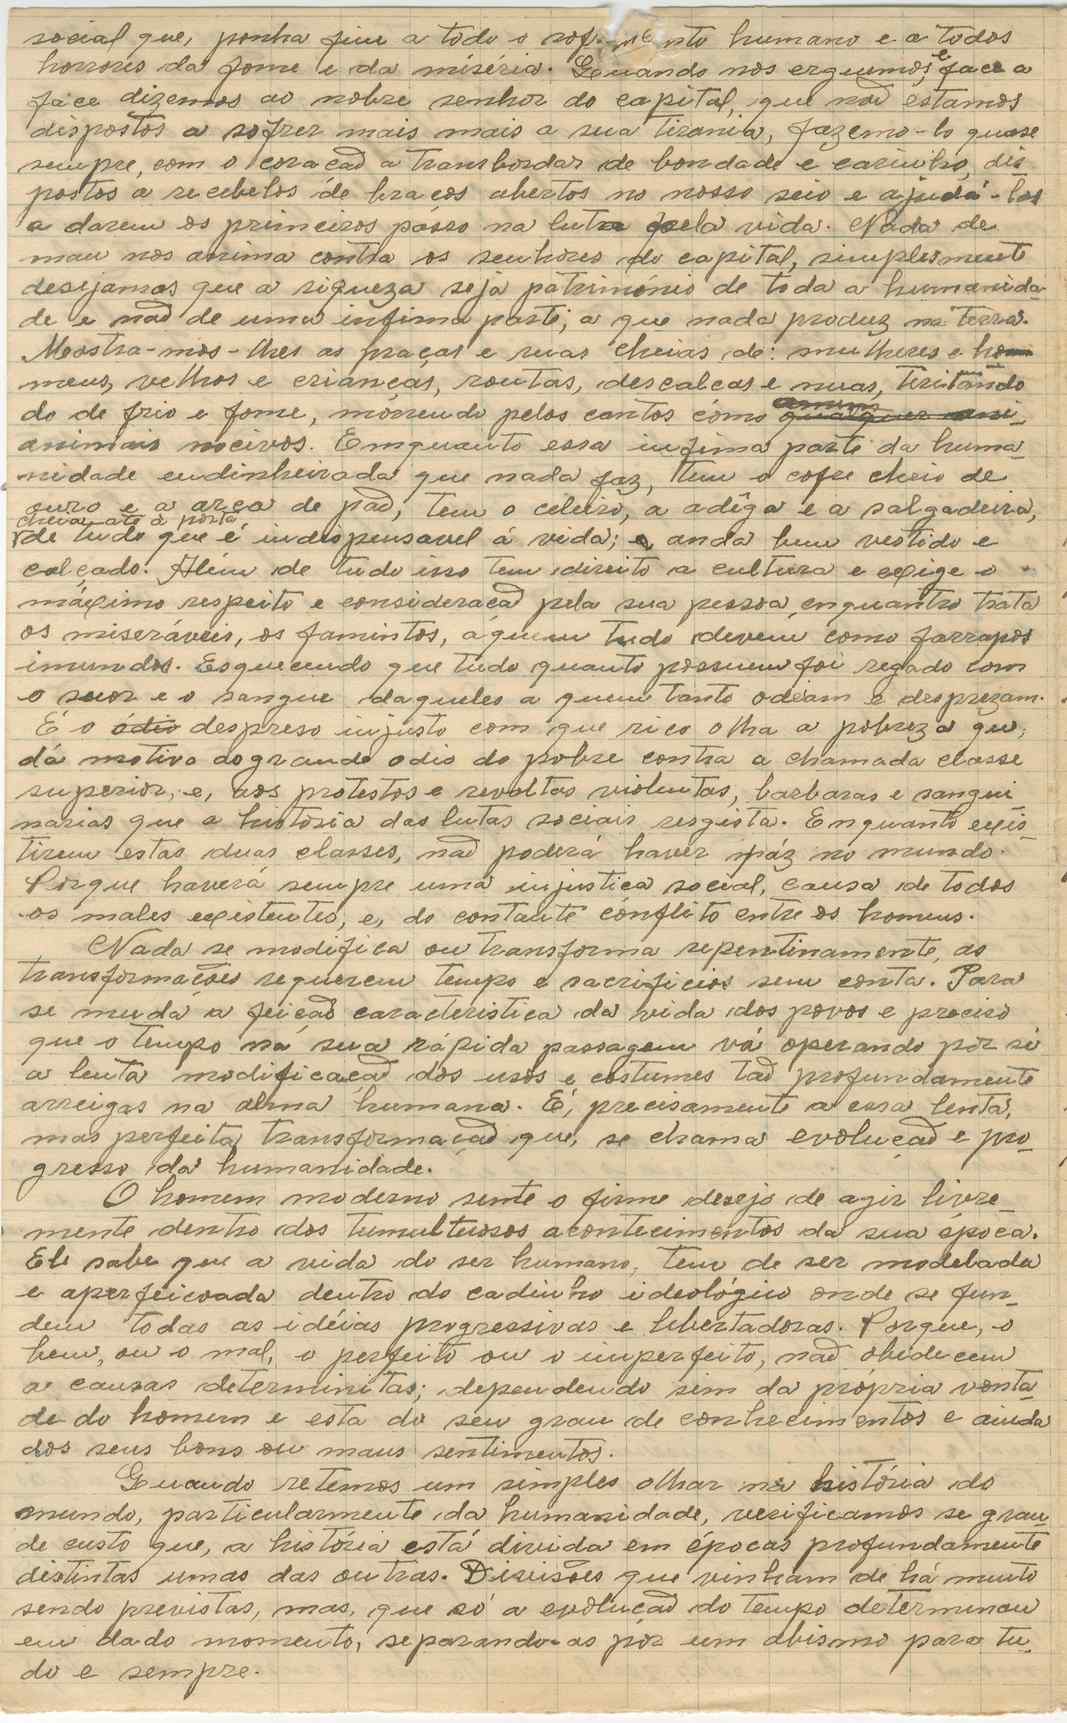 social que, ponha fim a todo o sofrimento humano e a todos
horrores da fome e da miséria. Quando nos erguemos e face a
face dizemos ao nobre senhor do capital, que naõ estamos
dispostos a sofrer mais mais a sua tirania, fazemo-lo quase
sempre, com o coraçaõ a transbordar de bondade e carinho, dis
postos a recebelos de braços abertos no nosso seio e ajudá-los
a darem os primeiros pásso na luta pela vida. Nada de
mau nos anima contra os senhores do capital, simplesmente
desejamos que a riqueza seja património de toda a humanida-
de e naõ de uma infima parte, a que nada produz na terra.
Mostra-mos-lhes as praças e ruas cheias de: mulheres e hom
mens, velhos e crianças, routas, descalças e nuas, tiritando
do de frio e fome, morrendo pelos cantos cómo qualquer ani-
animais nocivos. Emquanto essa infima parte da huma-
nidade endinheirada que nada faz, tem o cofre cheio de
ouro e a arca de paõ, tem o celeiro, a adêga e a salgadeira,
cheia até à porta
de tudo que é indispensavel á vida; e anda bem vestido e
calçado. Além de tudo isso tem direito a cultura e exige o
máximo respeito e consideraçaõ pela sua pessoa, enquantro trata
os miseráveis, os famintos, áquem tudo devem como farrapos
imundos. Esquecendo que tudo quanto possuem foi regado com
o suor e o sangue daqueles a quem tanto odeiam e desprezam.
É o ódio despreso injusto com que rico olha a pobreza que,
dá motivo ao grande odio do pobre contra a chamada classe
superior, e, aos protestos e revoltas violentas, barbaras e sangui
nárias que a história das lutas sociais resgista. Enquanto exis-
tirem estas duas classes, naõ poderá haver páz no mundo.
Porque haverá sempre uma injustiça social, causa de todos
os males existentes, e, do contante cónflito entre os homens.
Nada se modifica ou transforma repentinamente, as
transformações requerem tempo e sacrificios sem conta. Para
se mudá a feiçaõ caracteristica da vida dos povos e preciso
que o tempo ná sua rápida passagem vá operando pór si
a lenta modificaçaõ dos usos e costumes taõ profundamente
arreigas na alma humana. É, precisamente a essa lenta,
mas perfeita transformaçaõ que, se chama evoluçaõ e pro-
gresso da humanidade.
O homem moderno sente o firme desejo de agir livre-
mente dentro dos tumultuosos acontecimentos da sua época.
Ele sabe que a vida do ser humano, tem de ser modelada
e aperfeiçoada dentro do cadinho ideológico onde se fun-
dem todas as idéias progressivas e libertadoras. Porque, o
bem, ou o mal, o perfeito ou o imperfeito, naõ obedecem
a causas determinitas; dependendo sim da própria vonta-
de do homem e esta do seu grau de conhecimentos e ainda
dos seus bons ou maus sentimentos.
Quando retemos um simples olhar na história do
mundo, particularmente da humanidade, verificamos se gran-
de custo que, a história está divida em épocas profundamente
distintas umas das outras. Divisões que vinham de há muito
sendo previstas, mas, que só a evoluçaõ do tempo determinou
em dado momento, separando-as pór um abismo para tu-
do e sempre.